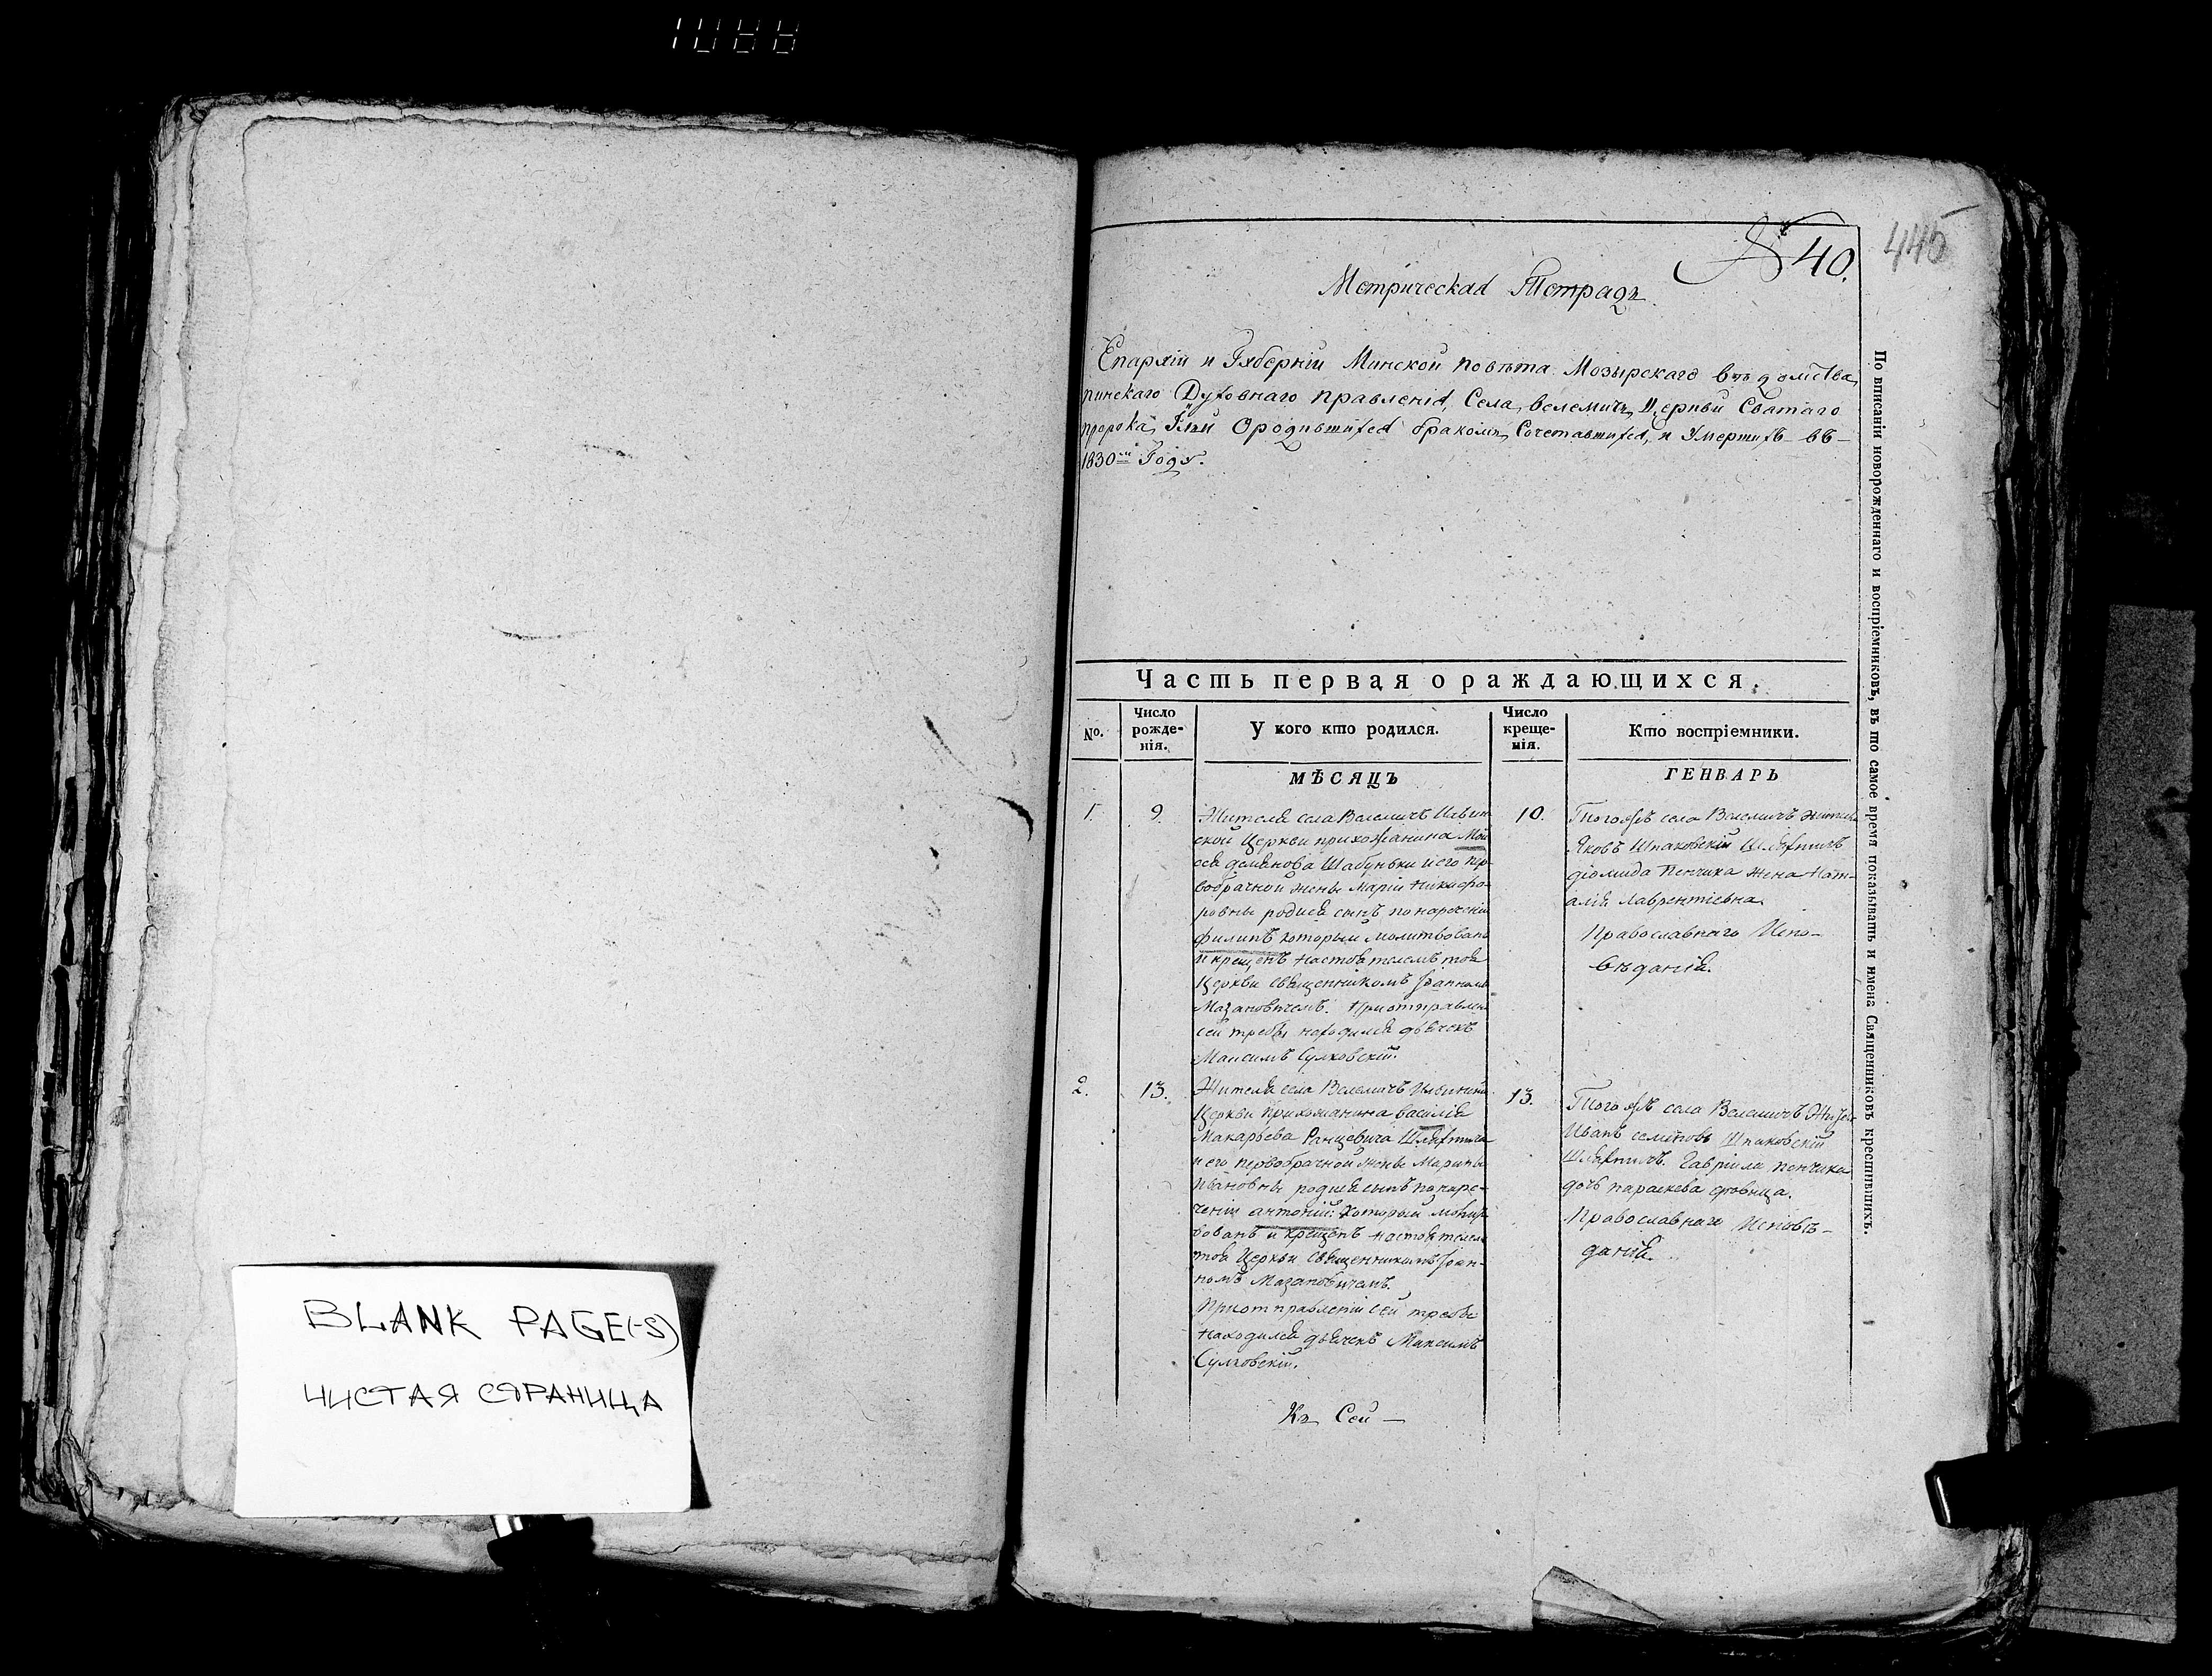 BLANK PAGE(-S)
ЧИСТАЯ СТРАНИЦА
№ 40.
445
Метрическая Тетрадь
Епархіи и Губерніи Минской повѣта Мозырскаго вѣдомства
пинскаго Духовнаго правленія, Села велемичъ Церкви Святаго
пророка Иліи Ородившихся бракомъ Сочетавшихся, и Умершихъ въ
1830м Году.
Часть первая о раждающихся.
No.
Число рожде-нія.
У кого кто родился.
Число креще-нія.
Кто воспріемники.
МѢСЯЦЪ
ГЕНВАРЬ
1.
9.
Жителя села Велемичъ Ильин
ской Церкви прихожанина Мои
сея демянова Шабуньки и его пер
вобрачной жены Маріи Никифо
ровны родися сынъ понаречени
филипъ который молитвованъ
и крещенъ настоятелемъ тоя
Церкви священникомъ Іоанномъ
Мазановичемъ. Приотправлени
сей требы находился дьячекъ
Максимъ Сулковскій.
10.
Тогожъ села Велемичъ житель
Яковъ Шпаковскій Шляхтичъ
діомида Пенчика жена Нат-
алія Лаврентіевна
Православнаго Испо-
вѣданія.
2.
13.
Жителя села Велемичъ Ильинской
Церкви Прихожанина василія
Макарьева Ранцевича Шляхтича
и его первобрачной жены Марины
Ивановны родися сынъ понаре-
чении антоній: Который молит
вованъ и крещенъ настоятелем
тоя Церкви Священникомъ Іоан-
номъ Мазановичемъ.
Приотправленіи сей требы
Находился дьячекъ Максимъ
Сулковскій.
13.
Тогожъ села Велемичъ Житель
Иванъ семіновъ Шпаковскій
Шляхтичъ. Гавріила пенчика
дочь параскева дѣвица.
Православнаго Исповѣ-
данія.
Къ Сей —
По вписаніи новорожденнаго и воспріемниковъ, въ то самое время показывать и имена Священниковъ крестившихъ.